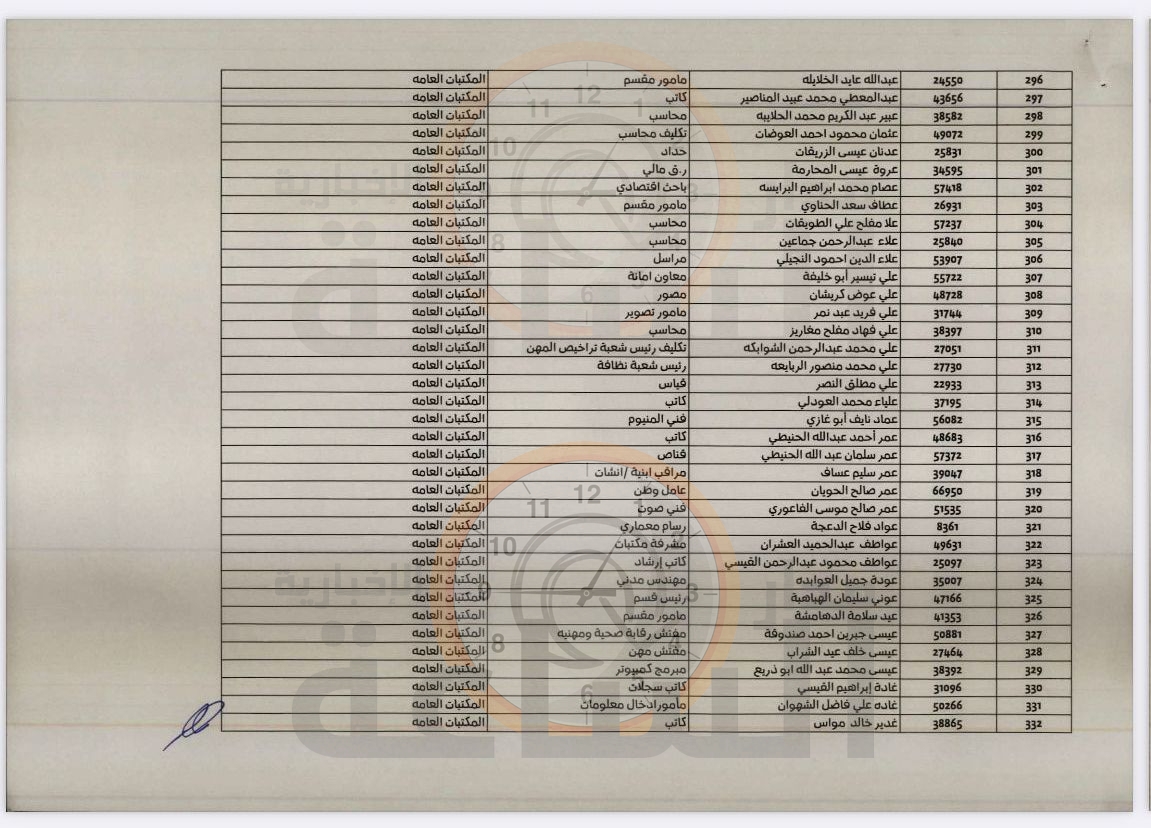 296 24550 عبدالله عايد الخلايله مامور مقسم المكتبات العامه
297 43656 عبدالمعطي محمد عبيد المناصير كاتب المكتبات العامه
298 38582 عبير عبد الكريم محمد الحلايبه محاسب المكتبات العامه
299 49072 عثمان محمود احمد العوضات تكليف محاسب المكتبات العامه
300 25831 عدنان عيسى الزريقات حداد المكتبات العامه
301 34595 عروة عيسى المحارمة ر.ق مالي المكتبات العامه
302 57418 عصام محمد ابراهيم البرايسه باحث اقتصادي المكتبات العامه
303 26931 عطاف سعد الحناوي مامور مقسم المكتبات العامه
304 57237 علا مفلح علي الطويقات محاسب المكتبات العامه
305 25840 علاء عبدالرحمن جماعين محاسب المكتبات العامه
306 53907 علاء الدين احمود النجيلي مراسل المكتبات العامه
307 55722 علي تيسير أبو خليفة معاون امانة المكتبات العامه
308 48728 علي عوض كريشان مصور المكتبات العامه
309 31744 علي فريد عبد نمر مامور تصوير المكتبات العامه
310 38397 علي فهاد مفلح مغاريز محاسب المكتبات العامه
311 27051 علي محمد عبدالرحمن الشوابكه تكليف رئيس شعبة تراخيص المهن المكتبات العامه
312 27730 علي محمد منصور الربايعه رئيس شعبة نظافة المكتبات العامه
313 22933 علي مطلق النصر قياس المكتبات العامه
314 37195 علياء محمد العودلي كاتب المكتبات العامه
315 56082 عماد نايف أبو غازي فني المنيوم المكتبات العامه
316 48683 عمر أحمد عبدالله الحنيطي كاتب المكتبات العامه
317 57372 عمر سلمان عبد الله الحنيطي قناص المكتبات العامه
318 39047 عمر سليم عساف مراقب ابنية /انشات المكتبات العامه
319 66950 عمر صالح الحويان عامل وطن المكتبات العامه
320 51535 عمر صالح موسى الفاعوري فني صوت المكتبات العامه
321 8361 عواد فلاح الدعجة رسام معماري المكتبات العامه
322 49631 عواطف عبدالحميد العشران مشرفة مكتبات المكتبات العامه
323 25097 عواطف محمود عبدالرحمن القيسي كاتب إرشاد المكتبات العامه
324 35007 عودة جميل العوابده مهندس مدني المكتبات العامه
325 47166 عوني سليمان الهباهبة رئيس قسم المكتبات العامه
326 41353 عيد سلامة الدهامشة مامور مقسم المكتبات العامه
327 50881 عيسى جبرين احمد صندوقة مفتش رقابة صحية ومهنيه المكتبات العامه
328 27464 عيسى خلف عيد الشراب مفتش مهن المكتبات العامه
329 38392 عيسى محمد عبد الله ابو ذريع مبرمج كمبيوتر المكتبات العامه
330 31096 غادة إبراهيم القيسي كاتب سجلات المكتبات العامه
331 50266 غاده علي فاضل الشهوان مامورادخال معلومات المكتبات العامه
332 38865 غدير خالد مواس كاتب المكتبات العامه